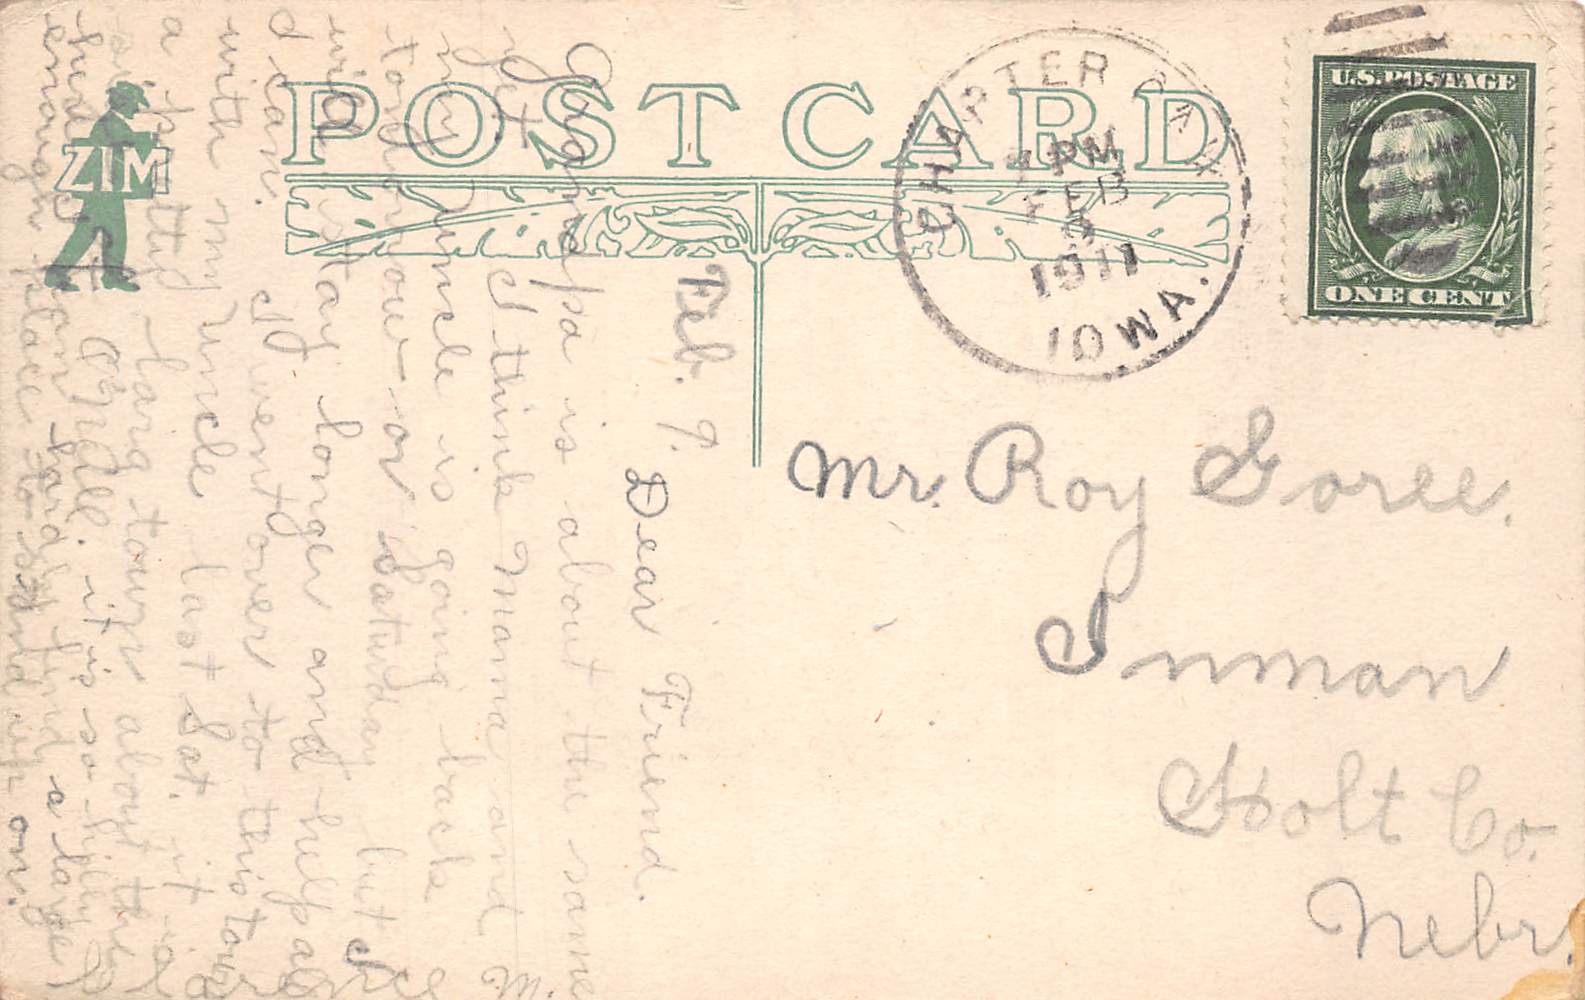 POST CARD
ZIM
CHARTER OAK
PM
FEB
1911
IOWA.
U.S. POSTAGE
ONE CENT
Mr. Roy Goree.
Inman
Holt Co.
Nebr.
Feb. 9.
Dear Friend.
Grandpa is about the same
yet I think Mama and M.
my Uncle is going back
tomorrow or Saturday but I
will stay longer and help all
I can. I went over to this town
with my Uncle last Sat. it is
a pretty town about the
it is so hilly
you hardly find a large
enough place to stand up on.